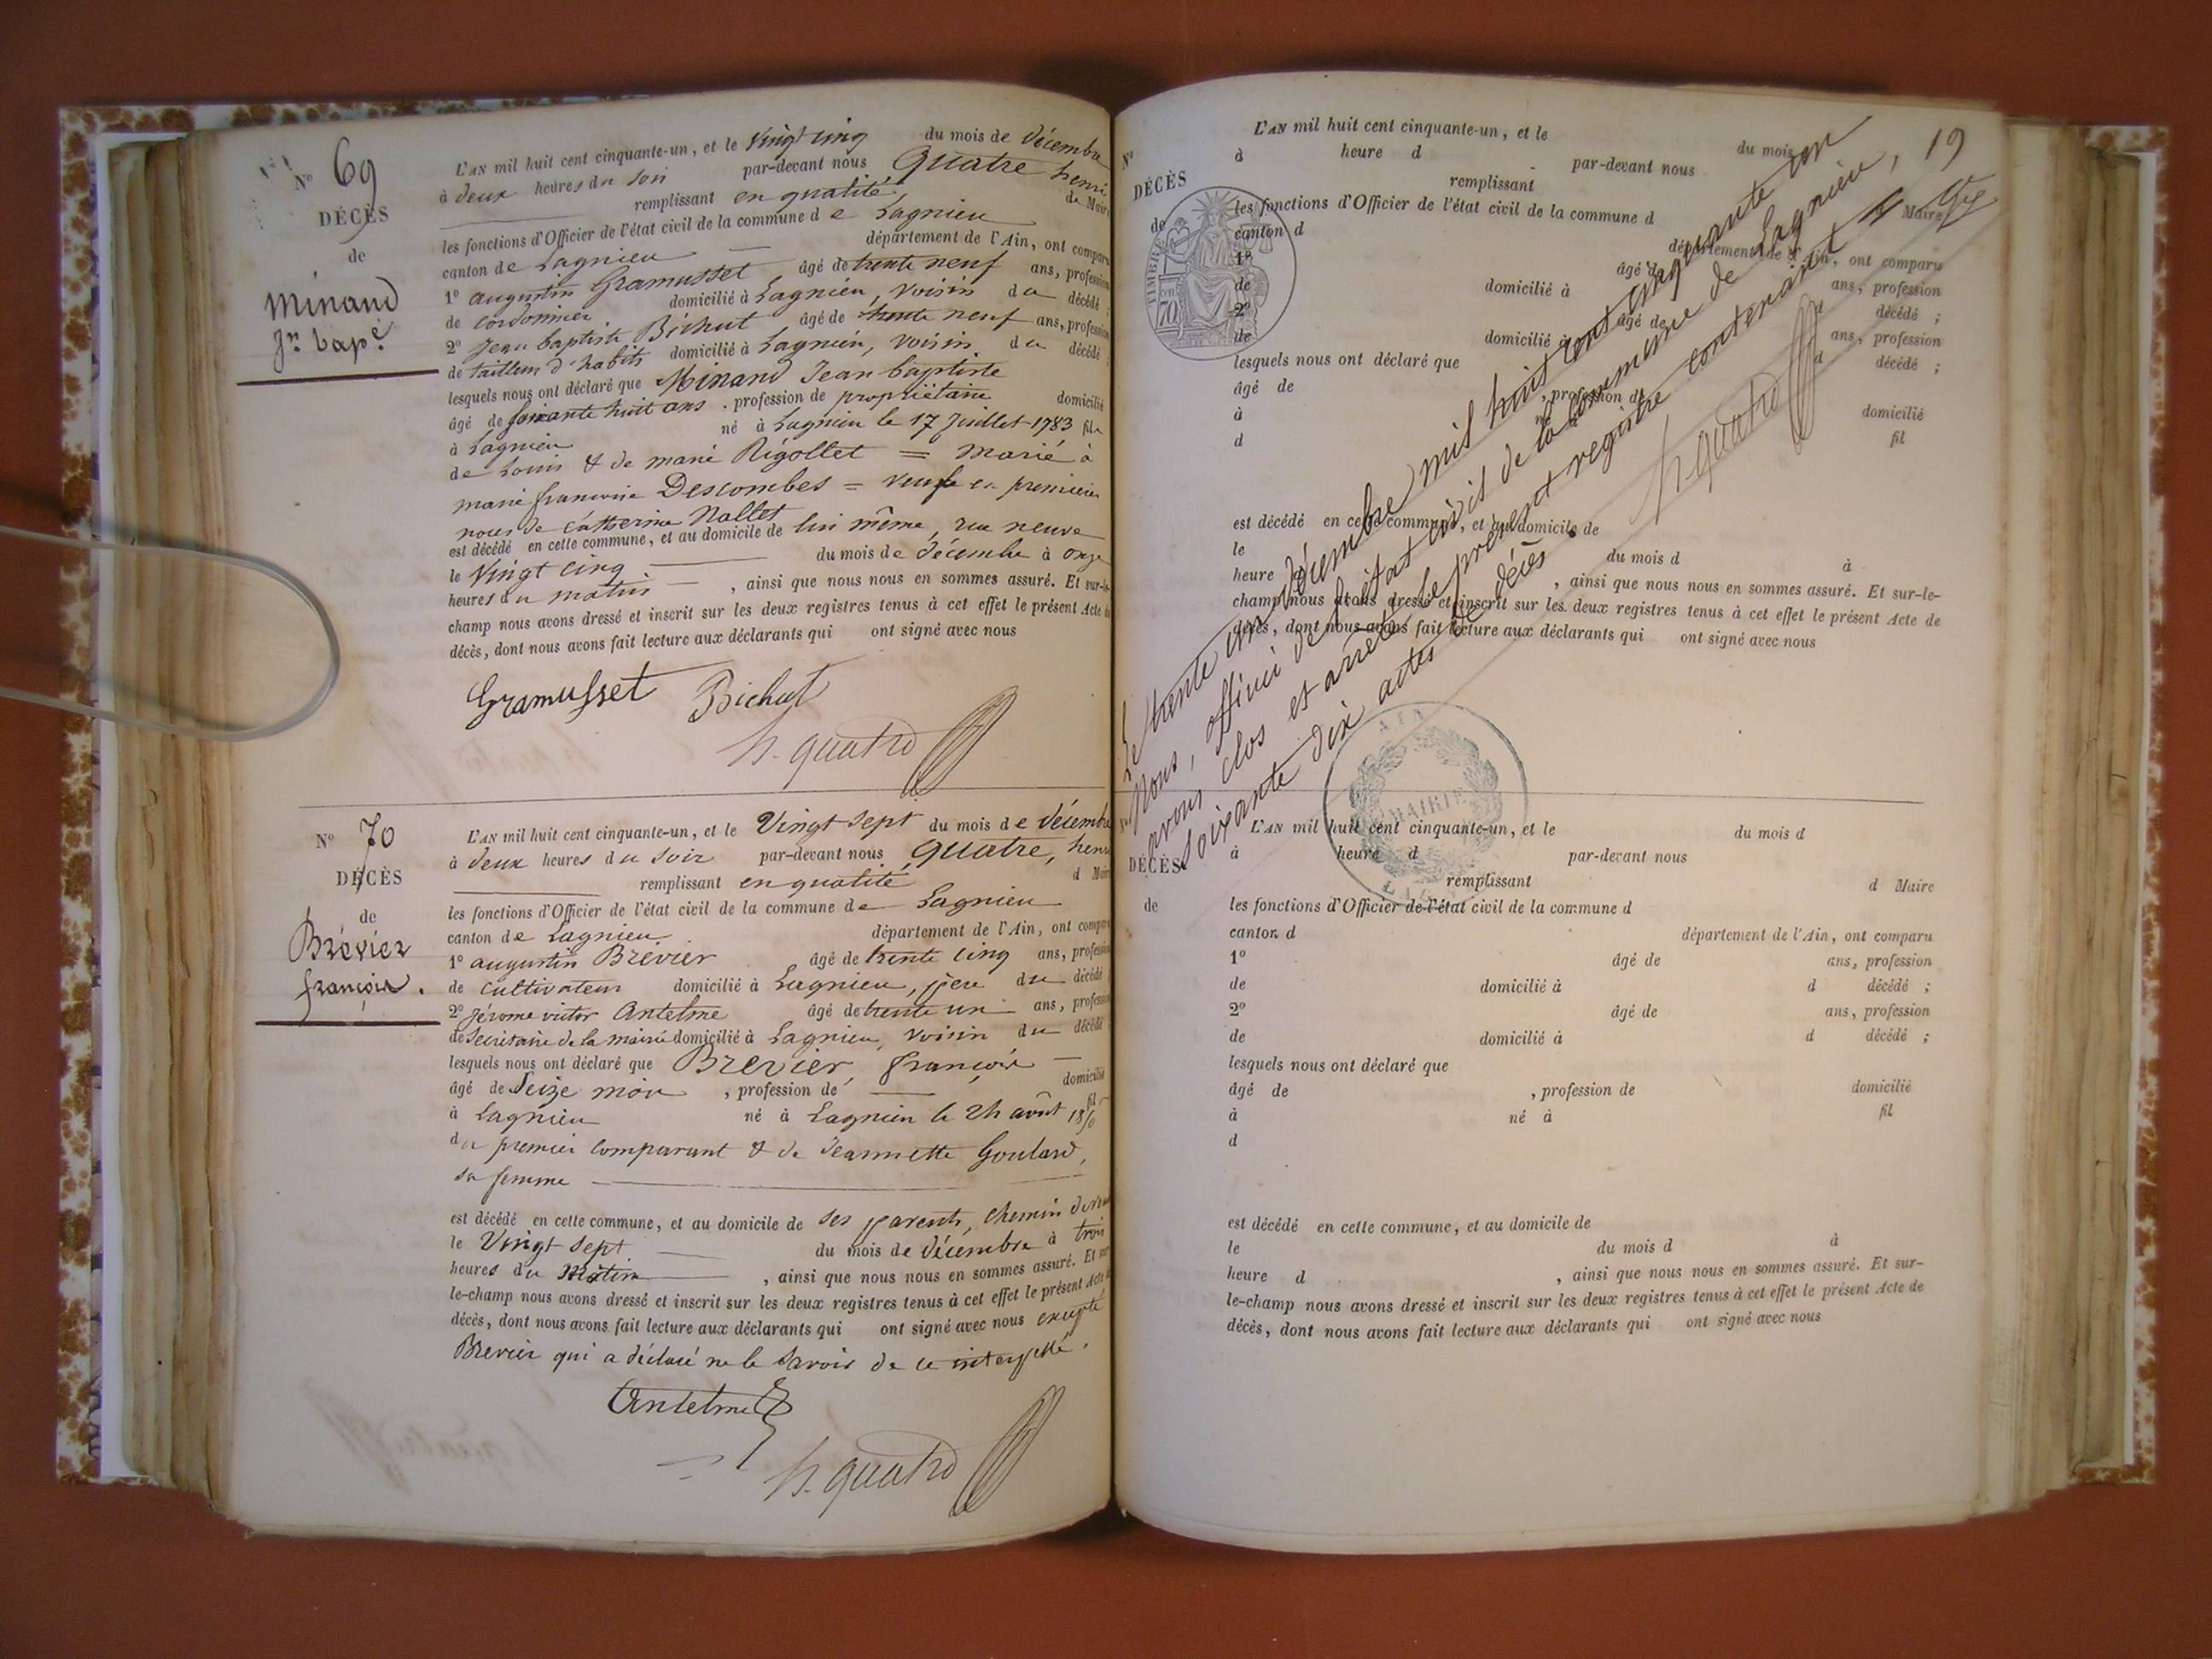 N° 69
DÉCÈS
de
Minand
Jn bapte
L'AN mil huit cent cinquante-un, et le vingt cinq du mois de décembre
à deux heures du soir par-devant nous Quatre henri
remplissant en qualité de Maire
les fonctions d'Officier de l'état civil de la commune de Lagnieu
canton de Lagnieu département de l'Ain, ont comparu
1° augustin Gramusset âgé de trente neuf ans, profession
de cordonnier domicilié à Lagnieu, voisin du décédé ;
2° Jean baptiste Bichut âgé de trente neuf ans, profession
de tailleur d'habits domicilié à Lagnieu, voisin du décédé ;
lesquels nous ont déclaré que Minand Jean baptiste
âgé de soixante huit ans, profession de propriétaire domicilié
à Lagnieu né à Lagnieu le 17 Juillet 1783 fils
de Louis & de marie Rigollet = marié à
marie françoise Descombes = veuf en premières
noces de catherine Nallet
est décédé en cette commune, et au domicile de lui même, rue neuve
le vingt cinq du mois de décembre à onze
heures du matin, ainsi que nous nous en sommes assuré. Et sur-le-
champ nous avons dressé et inscrit sur les deux registres tenus à cet effet le présent Acte de
décès, dont nous avons fait lecture aux déclarants qui ont signé avec nous
Gramusset Bichut
h. quatre
N° 70
DÉCÈS
de
Brévier
françois.
L'AN mil huit cent cinquante-un, et le Vingt sept du mois de décembre
à deux heures du soir par-devant nous Quatre, henri
remplissant en qualité d Maire
les fonctions d'Officier de l'état civil de la commune de Lagnieu
canton de Lagnieu département de l'Ain, ont comparu
1° augustin Brévier âgé de trente cinq ans, profession
de cultivateur domicilié à Lagnieu, père du décédé ;
2° Jerome victor Antelme âgé de trente un ans, profession
de secrétaire de la mairie domicilié à Lagnieu, voisin du décédé ;
lesquels nous ont déclaré que Brevier, françois
âgé de Seize mois, profession de domicilié
à Lagnieu né à Lagnieu le 24 août 1850 fils
du premier comparant & de Jeannette Goulard,
sa femme
est décédé en cette commune, et au domicile de ses parents, chemin
le Vingt sept du mois de décembre à trois
heures du Matin, ainsi que nous nous en sommes assuré. Et sur-
le-champ nous avons dressé et inscrit sur les deux registres tenus à cet effet le présent Acte de
décès, dont nous avons fait lecture aux déclarants qui ont signé avec nous excepté
Brevier qui a déclaré ne le savoir de ce interpellé.
Antelme
h. quatre
19
N°
DÉCÈS
de
L'AN mil huit cent cinquante-un, et le du mois
à heure d par-devant nous
remplissant Maire
les fonctions d'Officier de l'état civil de la commune d
canton d département de l'Ain, ont comparu
1° âgé de ans, profession
de domicilié à d décédé ;
2° âgé de ans, profession
de domicilié à d décédé ;
lesquels nous ont déclaré que
âgé de , profession de domicilié
à né fil
d
est décédé en cette commune, et au domicile de
le du mois d à
heure , ainsi que nous nous en sommes assuré. Et sur-le-
champ nous avons dressé et inscrit sur les deux registres tenus à cet effet le présent Acte de
décès, dont nous avons fait lecture aux déclarants qui ont signé avec nous
TIMBRE
70
Le trente un décembre mil huit cent cinquante un
Nous, officier de l'état civil de la commune de Lagnieu,
avons clos et arrêté le présent registre contenant
soixante dix actes de décès.
h. quatre
AIN
MAIRIE
DÉCÈS
de
L'AN mil huit cent cinquante-un, et le du mois d
à heure d par-devant nous
remplissant d Maire
les fonctions d'Officier de l'état civil de la commune d
canton d département de l'Ain, ont comparu
1° âgé de ans, profession
de domicilié à d décédé ;
2° âgé de ans, profession
de domicilié à d décédé ;
lesquels nous ont déclaré que
âgé de , profession de domicilié
à né à fil
d
est décédé en cette commune, et au domicile de
le du mois d à
heure d , ainsi que nous nous en sommes assuré. Et sur-
le-champ nous avons dressé et inscrit sur les deux registres tenus à cet effet le présent Acte de
décès, dont nous avons fait lecture aux déclarants qui ont signé avec nous